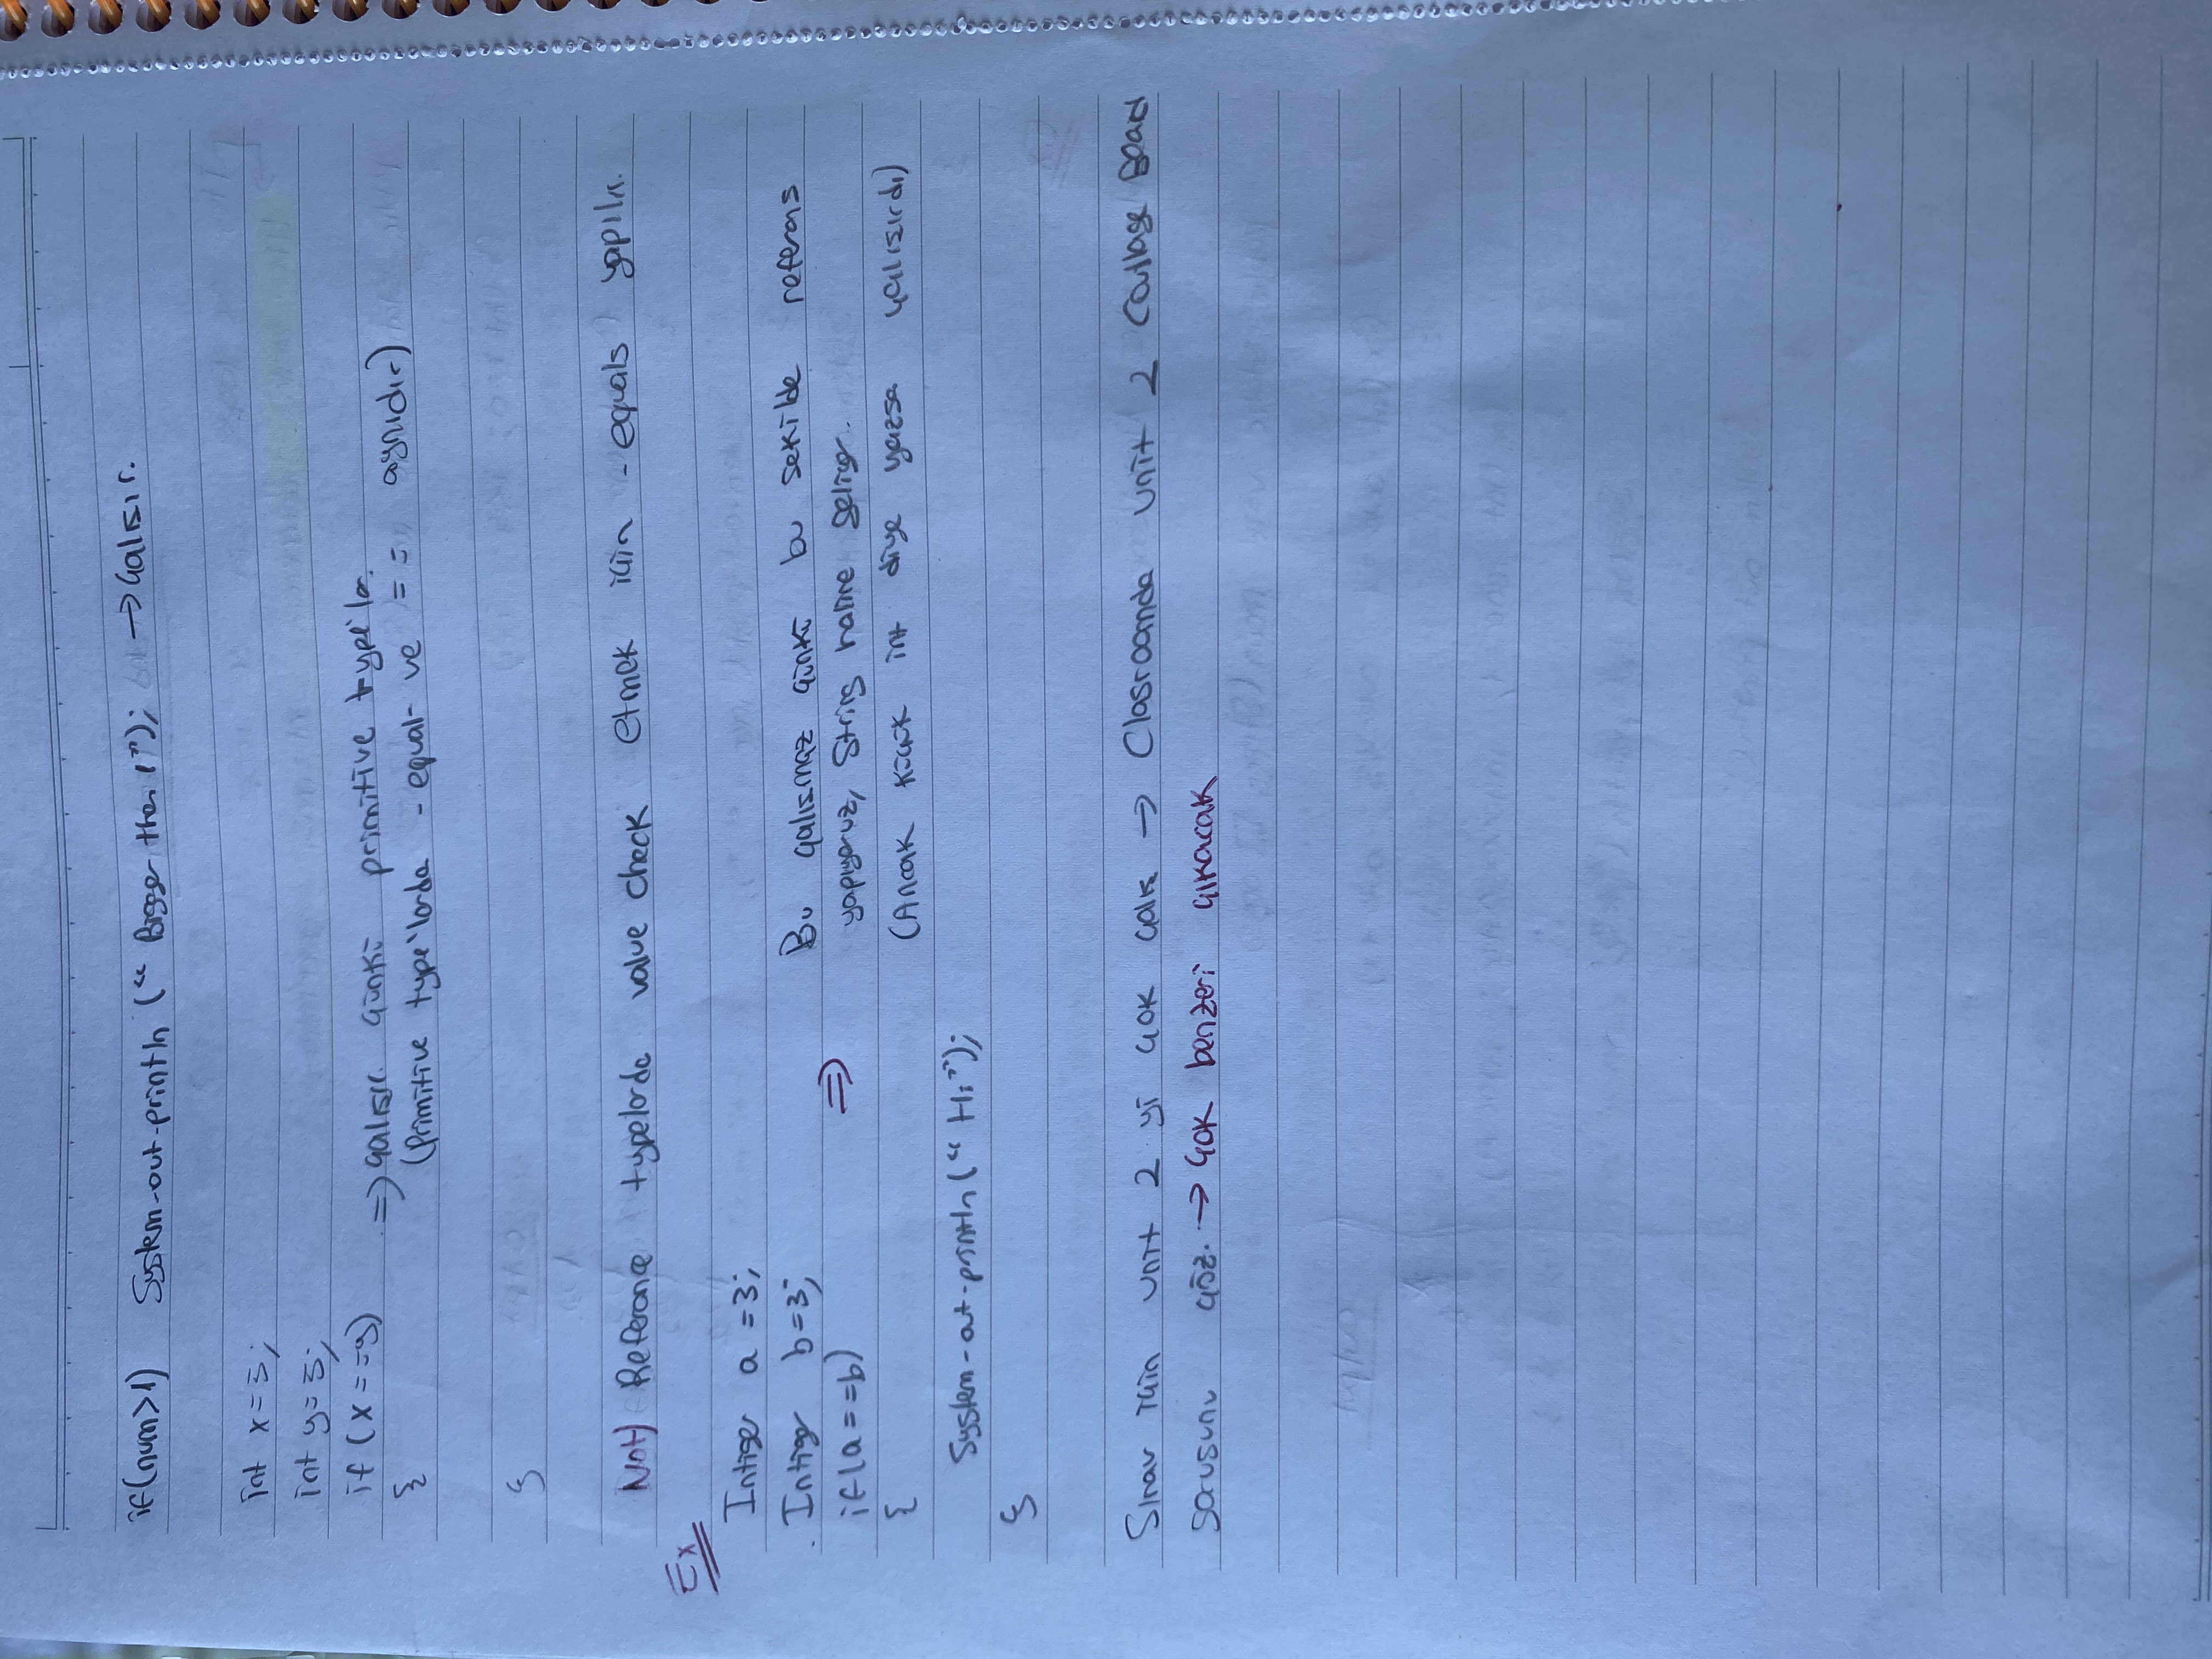 if(num>1) System-out-println (“ Bigger than 1”); → Çalışır.
int x=5;
int y=5;
if (x==y) => Çalışır. Çünkü primitive type'lar.
{ (Primitive type'larda - equal- ve == aynıdır)
}
Not) Referance typelarda value check etmek için -equals yapılır.
Ex
Intiger a =3;
Intiger b=3; Bu çalışmaz çünkü bu şekilde referans
if(a==b) => yapıyoruz, String haline geliyor.
{ (Ancak küçük int diye yazsa çalışırdı)
System-out-println (“ Hi”);
}
Sınav için unit 2 yi çok çalış → Clasroomda unit 2 Collage Board
sorusunu çöz. → Çok benzeri çıkacak